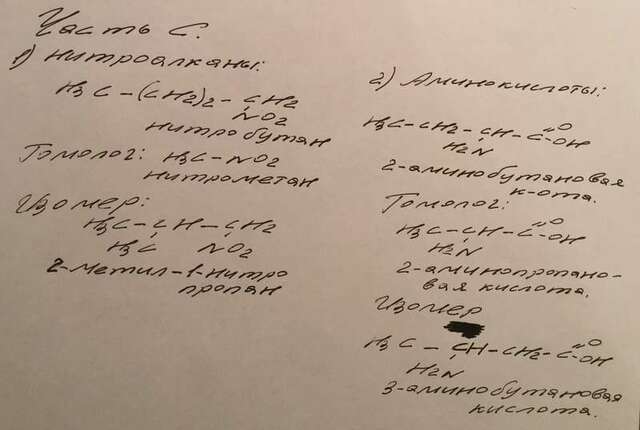 Часть С.
1) Нитроалканы:
H3C – (CH2)2 – CH2
NO2
нитробутан
Гомолог: H3C – NO2
нитрометан
Изомер:
H3C – CH – CH2
H3C NO2
2-метил-1-нитро
пропан
2) Аминокислоты:
H3C – CH2 – CH – C =O
– OH
H2N
2-аминобутановая
к-ота.
Гомолог:
H3C – CH – C =O
– OH
H2N
2-аминопропано-
вая кислота.
Изомер
H3C – CH – CH2 – C =O
– OH
H2N
3-аминобутановая
кислота.